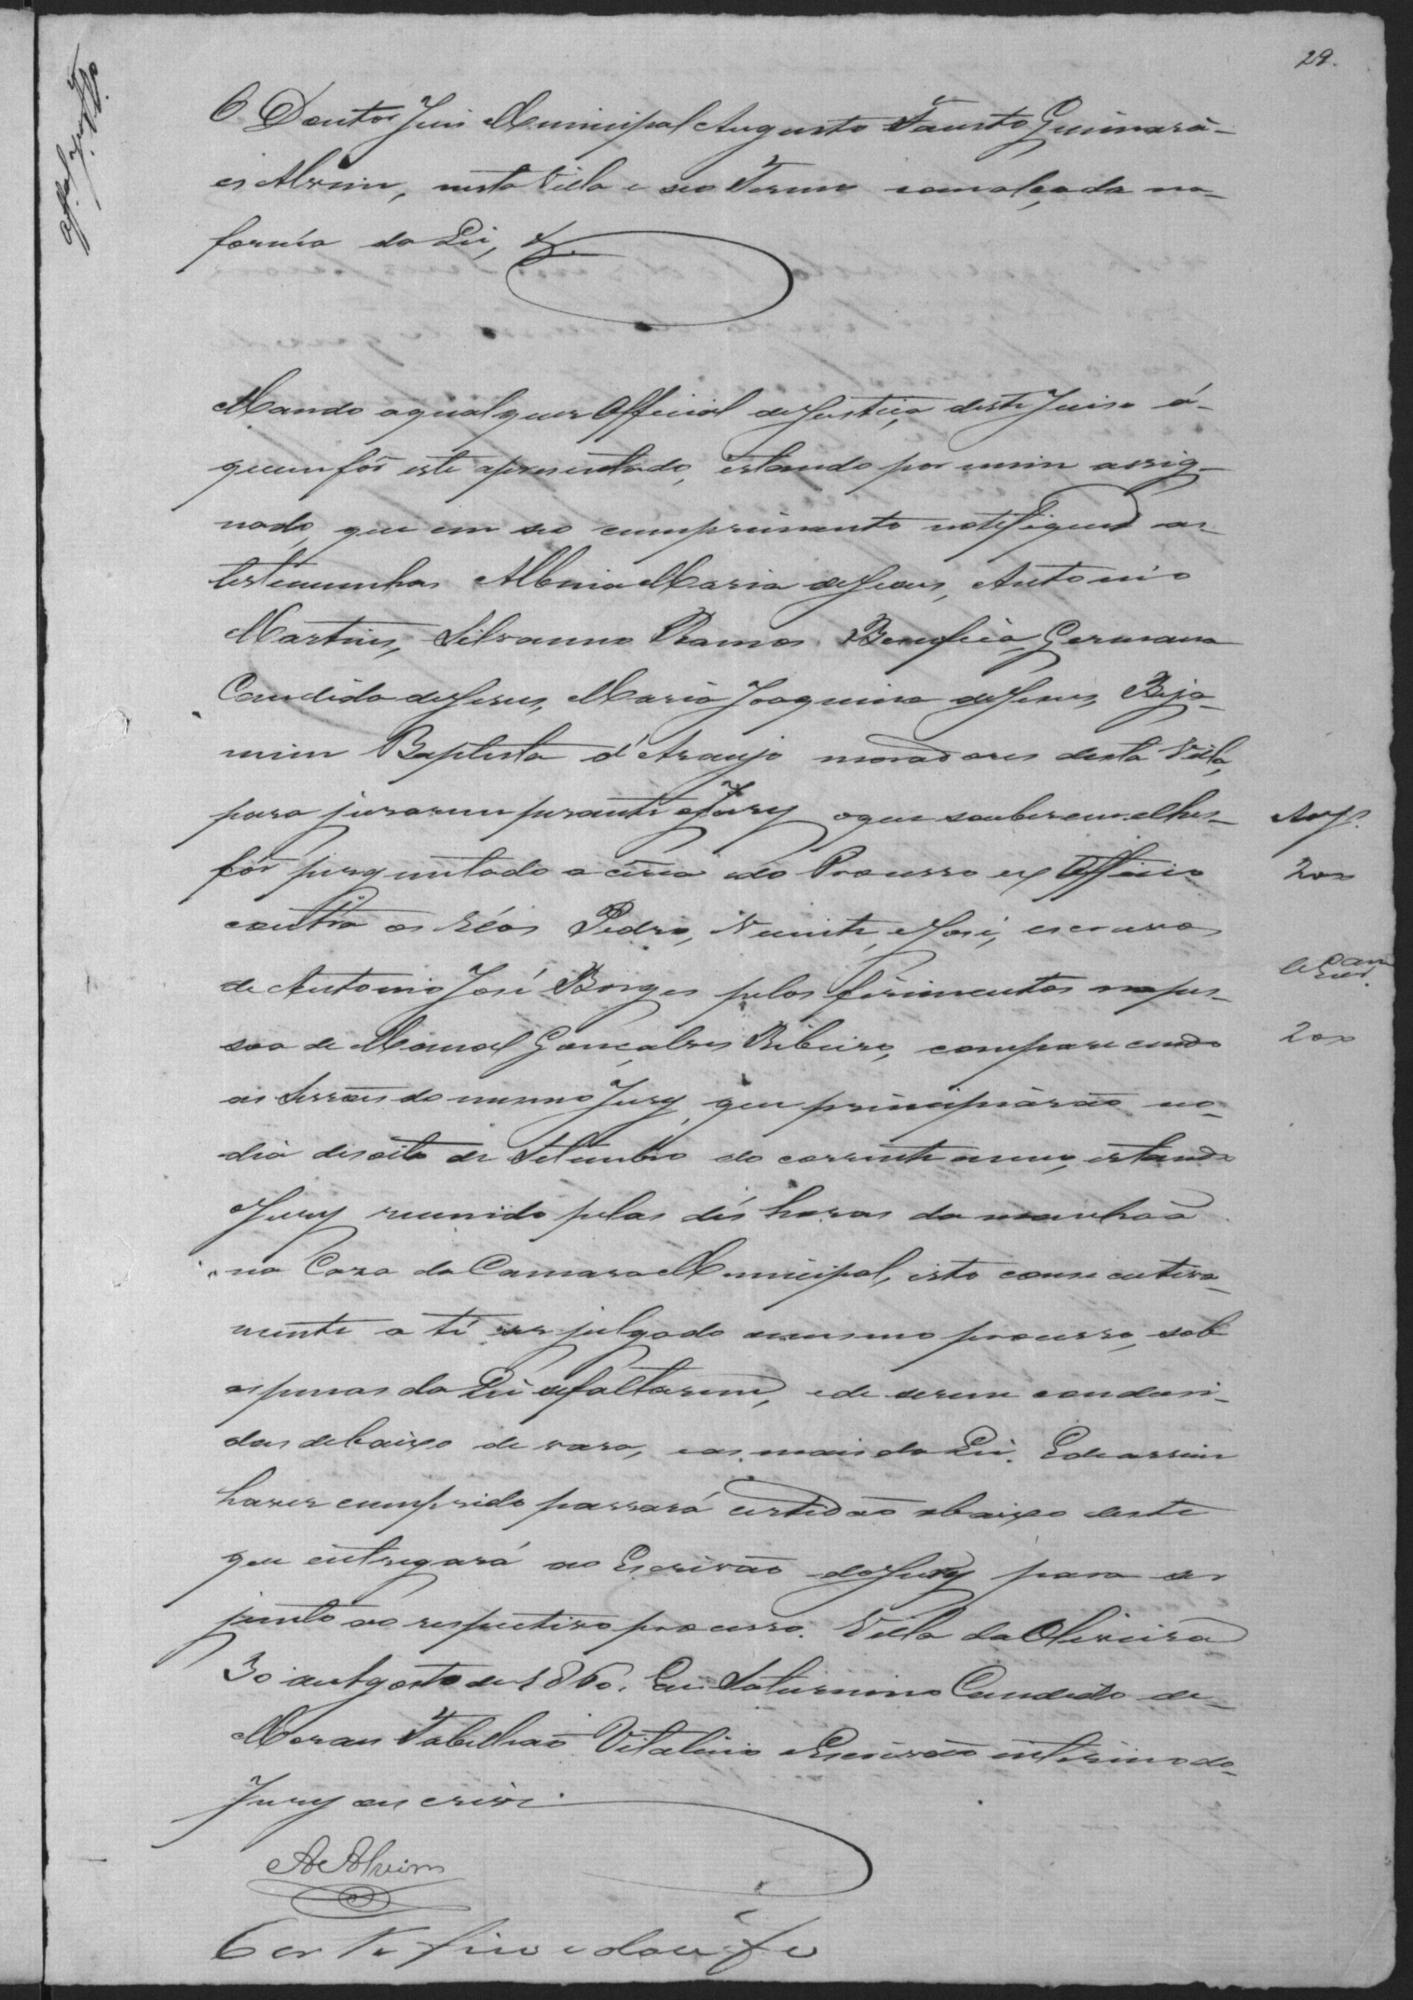 29.
O Doutor Juiz Municipal Augusto Fausto Guimarã-
es Alvim, nesta Villa e seo Termo com alçada na
forma da Lei, &.
Mando a qualquer Official de Justiça deste Juizo á-
quem fôr este apresentado, estando por mim assig-
nado, que em seo cumprimento notifique as
testemunhas Albina Maria de Jesus, Antonio
Martins, Silvanno Ramos, Bemfica, Germana
Candida de Jesus, Maria Joaquina de Jesus, Beja-
mim Baptista d'Araujo moradores desta Villa,
para jurarem perante o Jury o que souberem e lhes
fôr perguntado a cêrca do Processo ex Officio
contra os Réos Pedro, Vicente, e José, escravos
de Antonio José Borges pelos ferimentos na pes-
soa de Manoel Gonçalves Ribeiro, comparecendo
as Sessões do mesmo Jury, que principiarão no
dia desoito de Setembro do corrente anno, estando
Jury reunido pelas dés horas da manhaã
na Caza da Camara Municipal, isto consecutiva-
mente a té ser julgado o mesmo processo, sob
as penas da Lei se faltarem, e de serem condusi-
das debaixo de vara, e as mais da Lei. E de assim
haver cumprido passará certidão abaixo deste
que entregará ao Escrivão do Jury para ser
junto ao respectivo processo. Villa da Oliveira
30 de Agosto de 1860. Eu Saturnino Candido de
Moraes Tabelliaõ Vitalicio e Escrivaõ interino do
Jury o escrivi.
A Alvim
Certifico e dou fé
200
200